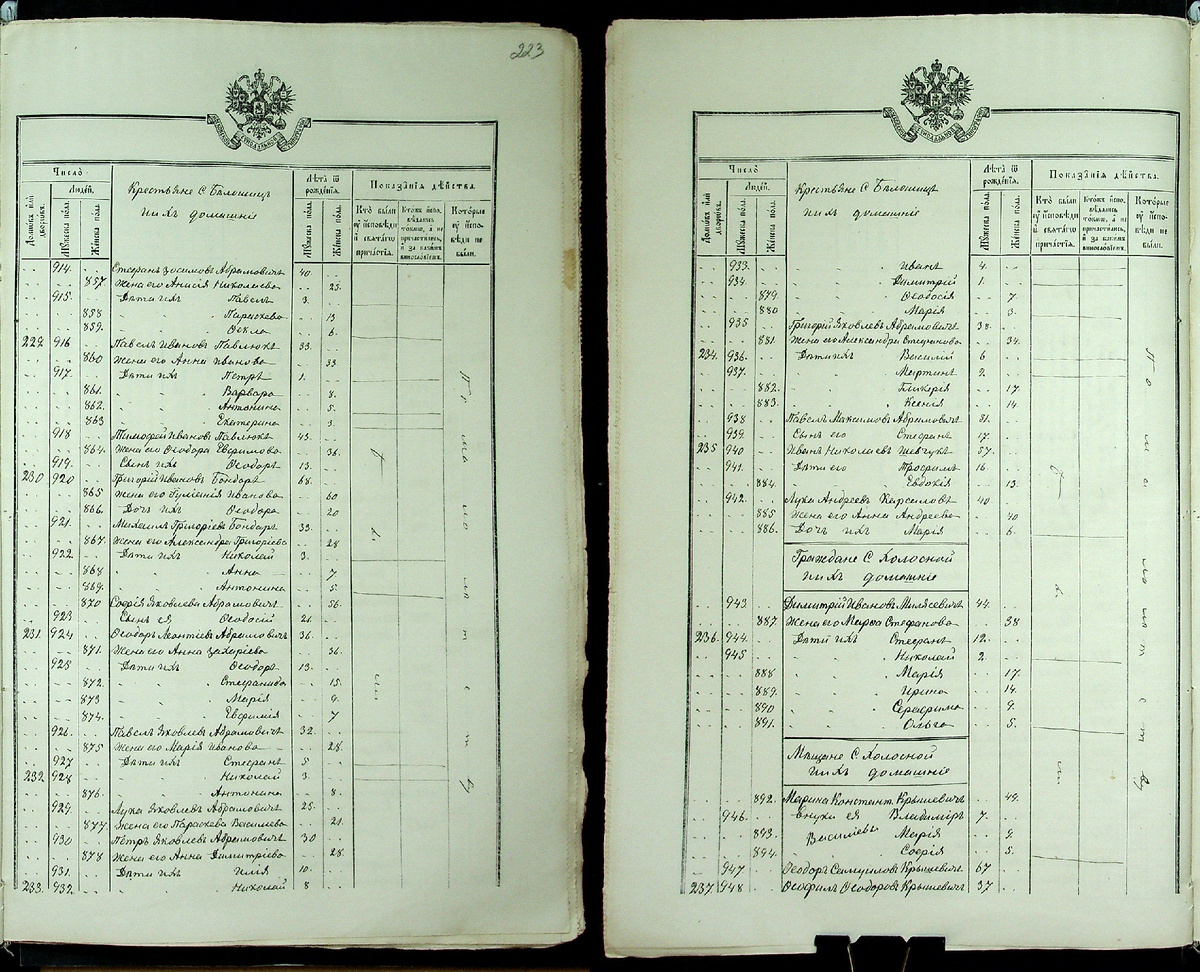 223
Число
Людей.
Домовъ или дворовъ.
Мужеска пола.
Женска пола.
Крестьяне С Бѣлошицъ
и ихъ домашніе
Лѣта ѿ рожденія.
Мужеска пола.
Женска пола.
Показанія дѣйства.
Кто были у исповѣди и святаго причастія.
Кто же исповѣдались токмо, а не причастились, и за какимъ винословіемъ.
Которые у исповѣди не были.
914. Стефанъ Зосимовъ Абрамовичъ 40.
857 Жена его Анисія Николаева 25.
915. Дѣти ихъ Павелъ 3.
858 Параскева 13
859. Ѳекла 6.
229. 916 Павелъ Ивановъ Павлюкъ 33.
860 Жена его Анна Иванова 33
917. Дѣти ихъ Петръ 1.
861. Варвара 8.
862. Антонина 5.
863 Екатерина 3.
918 Тимофей Ивановъ Павлюкъ 43.
864. Жена его Ѳеодора Евфимова 36.
919. Сынъ ихъ Ѳеодоръ 13.
230 920 Григорій Ивановъ Бондаръ 68.
865 Жена его Іуліанія Иванова 60
866. Дочь ихъ Ѳеодора 20
921. Михаилъ Григоріевъ Бондаръ 33.
867. Жена его Александра Григоріева 28
922. Дѣти ихъ Николай 3.
868 Анна 7.
869. Антонина 5.
870 Софія Яковлева Абрамовичъ 56.
923 Сынъ ея Ѳеодосій 21.
231. 924 Ѳеодоръ Леонтіевъ Абрамовичъ 36.
871. Жена его Анна Захаріева 36.
925 Дѣти ихъ Ѳеодоръ 13.
872. Стефанида 15.
873 Марія 9.
874. Евфимія 7
926. Павелъ Яковлевъ Абрамовичъ 32.
875 Жена его Марія Иванова 28.
927 Дѣти ихъ Стефанъ 5
232 928 Николай 3.
876. Антонина 8.
929. Лука Яковлевъ Абрамовичъ 25.
877. Жена его Параскева Василіева 21.
930 Петръ Яковлевъ Абрамовичъ 30
878 Жена его Анна Димитріева 28.
931. Дѣти ихъ Илія 10.
233. 932. Николай 8
Число
Людей.
Домовъ или дворовъ.
Мужеска пола.
Женска пола.
Крестьяне С Бѣлошицъ
и ихъ домашніе
Лѣта ѿ рожденія.
Мужеска пола.
Женска пола.
Показанія дѣйства.
Кто были у исповѣди и святаго причастія.
Кто же исповѣдались токмо, а не причастились, и за какимъ винословіемъ.
Которые у исповѣди не были.
933. Иванъ 4.
934. Димитрій 1.
879. Ѳеодосія 7
880 Марія 3.
935 Григорій Яковлевъ Абрамовичъ 38.
881. Жена его Александра Стефанова 34.
234. 936. Дѣти ихъ Василій 6
937. Мартинъ 2.
882. Гликерія 17.
883. Ксенія 14.
938 Павелъ Максимовъ Абрамовичъ 81.
939. Сынъ его Стефанъ 17.
235 940 Иванъ Николаевъ Шевчукъ 57.
941. Дѣти его Трофимъ 16
884. Евдокія 13.
942. Лука Андреевъ Кирсиловъ 40
885 Жена его Анна Андреева 40
886. Дочь ихъ Марія 6.
Граждане С Холосной
и ихъ домашніе
943. Димитрій Ивановъ Милясевичъ 44.
887 Жена его Марѳа Стефанова 38
236. 944. Дѣти ихъ Стефанъ 12.
945 Николай 2.
888 Марія 17.
889. Ирина 14.
890 Серафима 9.
891. Ольга 5.
Мѣщане С Холосной
и ихъ домашніе
892. Марина Констант. Крышевичъ 49.
946. Внуки ея Владиміръ 7.
893. Василіевы Марія 9.
894. Софія 5.
947 Ѳеодоръ Самуиловъ Крышевичъ 67
237. 948 Ѳеофилъ Ѳеодоровъ Крышевичъ 37